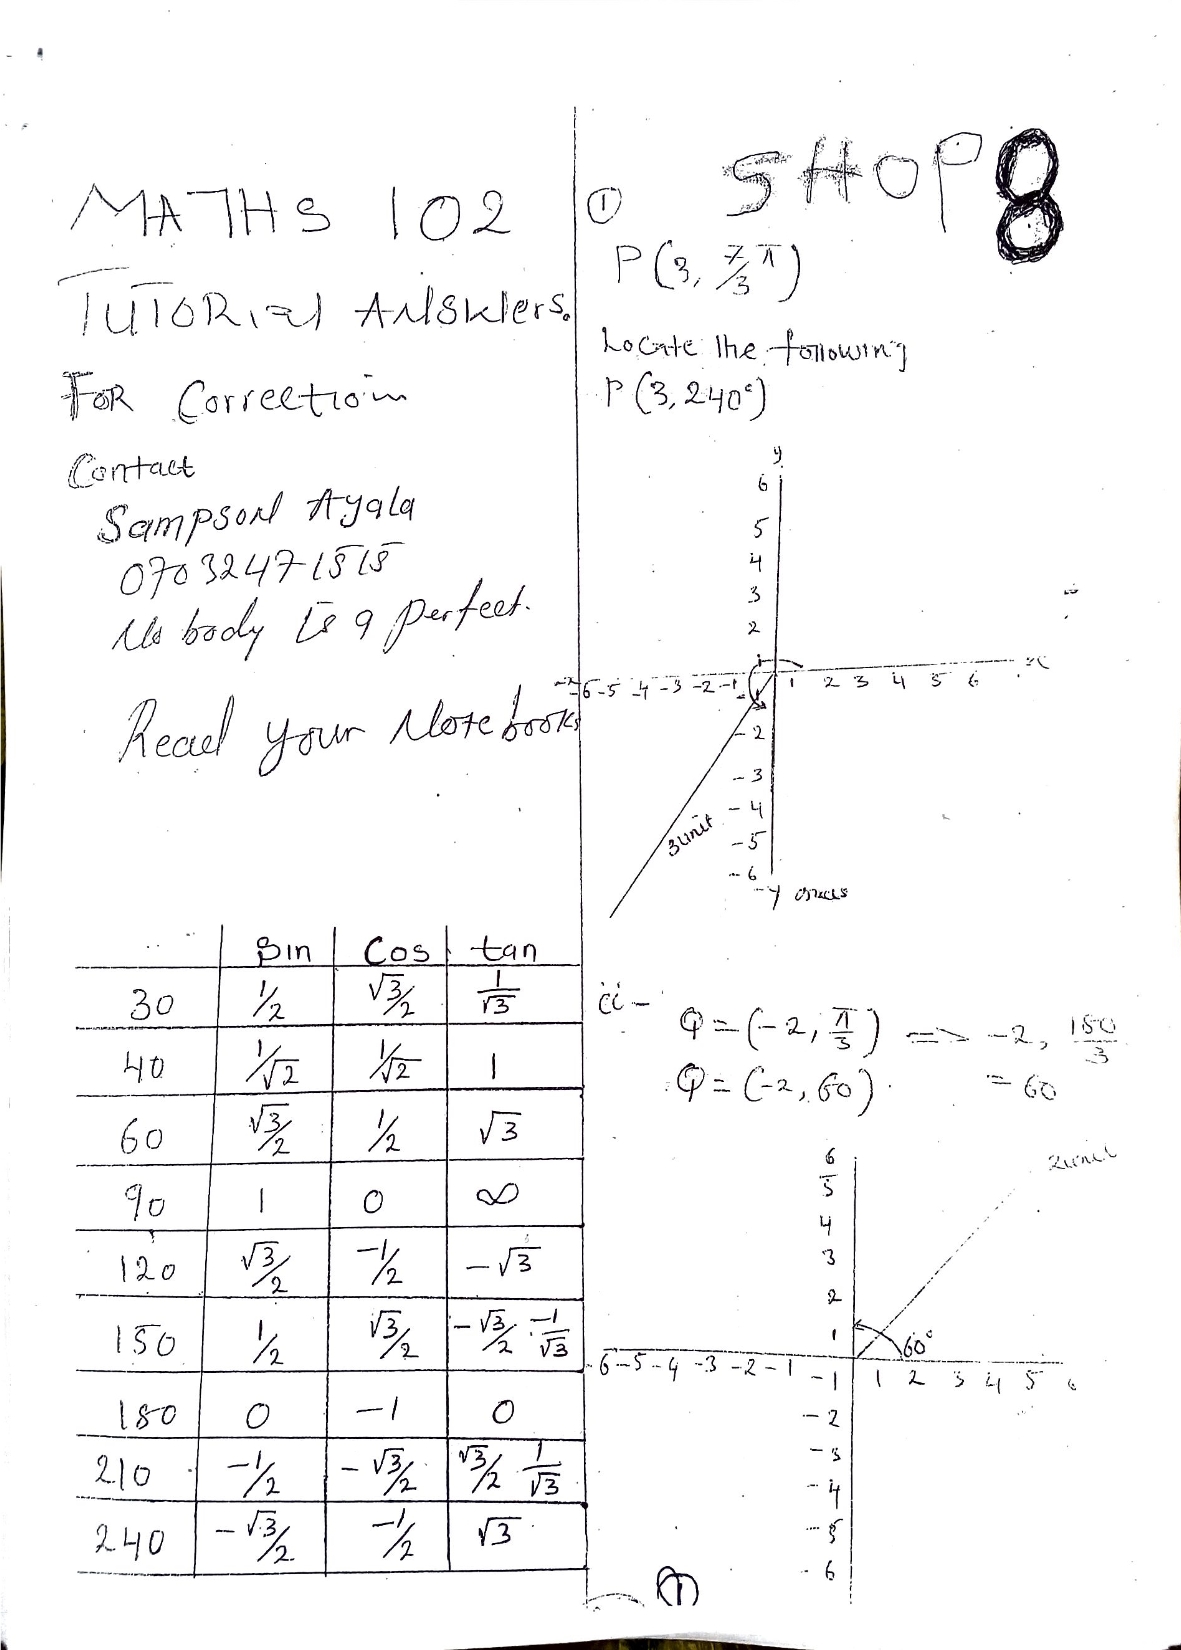 MATHS 102
TUTORial Answers.
FOR Correction
Contact
Sampson Ayala
07032471515
No body is a perfect.
Read your Note books
Sin Cos tan
30 1/2 √3/2 1/√3
40 1/√2 1/√2 1
60 √3/2 1/2 √3
90 1 0 ∞
120 √3/2 -1/2 -√3
150 1/2 √3/2 -√3/2 -1/√3
180 0 -1 0
210 -1/2 -√3/2 √3/2 1/√3
240 -√3/2 -1/2 √3
SHOP 8
①
P(3, 7/3 π)
Locate the following
P(3, 240°)
y
6
5
4
3
2
1
-6 -5 -4 -3 -2 -1 1 2 3 4 5 6 x
-2
-3
-4
3unit
-5
-6
-y
ii -
Q = (-2, π/3) => -2, 180/3
Q = (-2, 60). = 60
6
5
2unit
4
3
2
1
60°
-6 -5 -4 -3 -2 -1 1 2 3 4 5 6
-1
-2
-3
-4
-5
-6